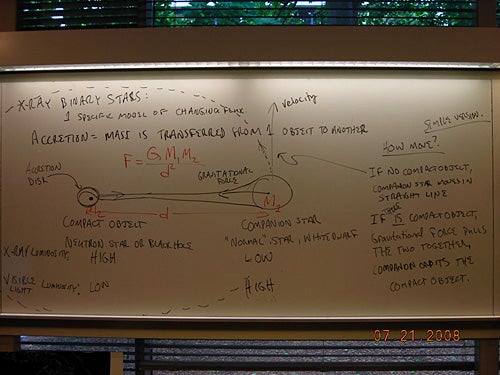 X-RAY BINARY STARS:
1 SPECIFIC MODEL OF CHANGING FLUX
ACCRETION = MASS IS TRANSFERRED FROM 1 OBJECT TO ANOTHER
velocity
F = G M1 M2
d²
ACCRETION
DISK
GRAVITATIONAL
FORCE
M2
d
M1
COMPACT OBJECT
NEUTRON STAR OR BLACK HOLE
COMPANION STAR
"NORMAL" STAR, WHITE DWARF
X-RAY LUMINOSITY:
HIGH
LOW
VISIBLE
LIGHT
LUMINOSITY:
LOW
HIGH
SIMPLE VERSION.
HOW MOVE?
IF NO COMPACT OBJECT,
COMPANION STAR MOVES IN
STRAIGHT LINE
IF THERE IS COMPACT OBJECT,
Gravitational FORCE PULLS
THE TWO TOGETHER,
COMPANION ORBITS THE
COMPACT OBJECT.
07 21 2008